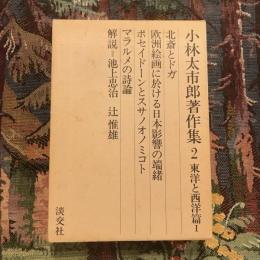 小林太市郎著作集 2 東洋と西洋篇-Ⅰ
北斎とドガ
欧洲絵画に於ける日本影響の端緒
ポセイドーンとスサノオノミコト
マラルメの詩論
解説=池上忠治 辻惟雄
淡交社